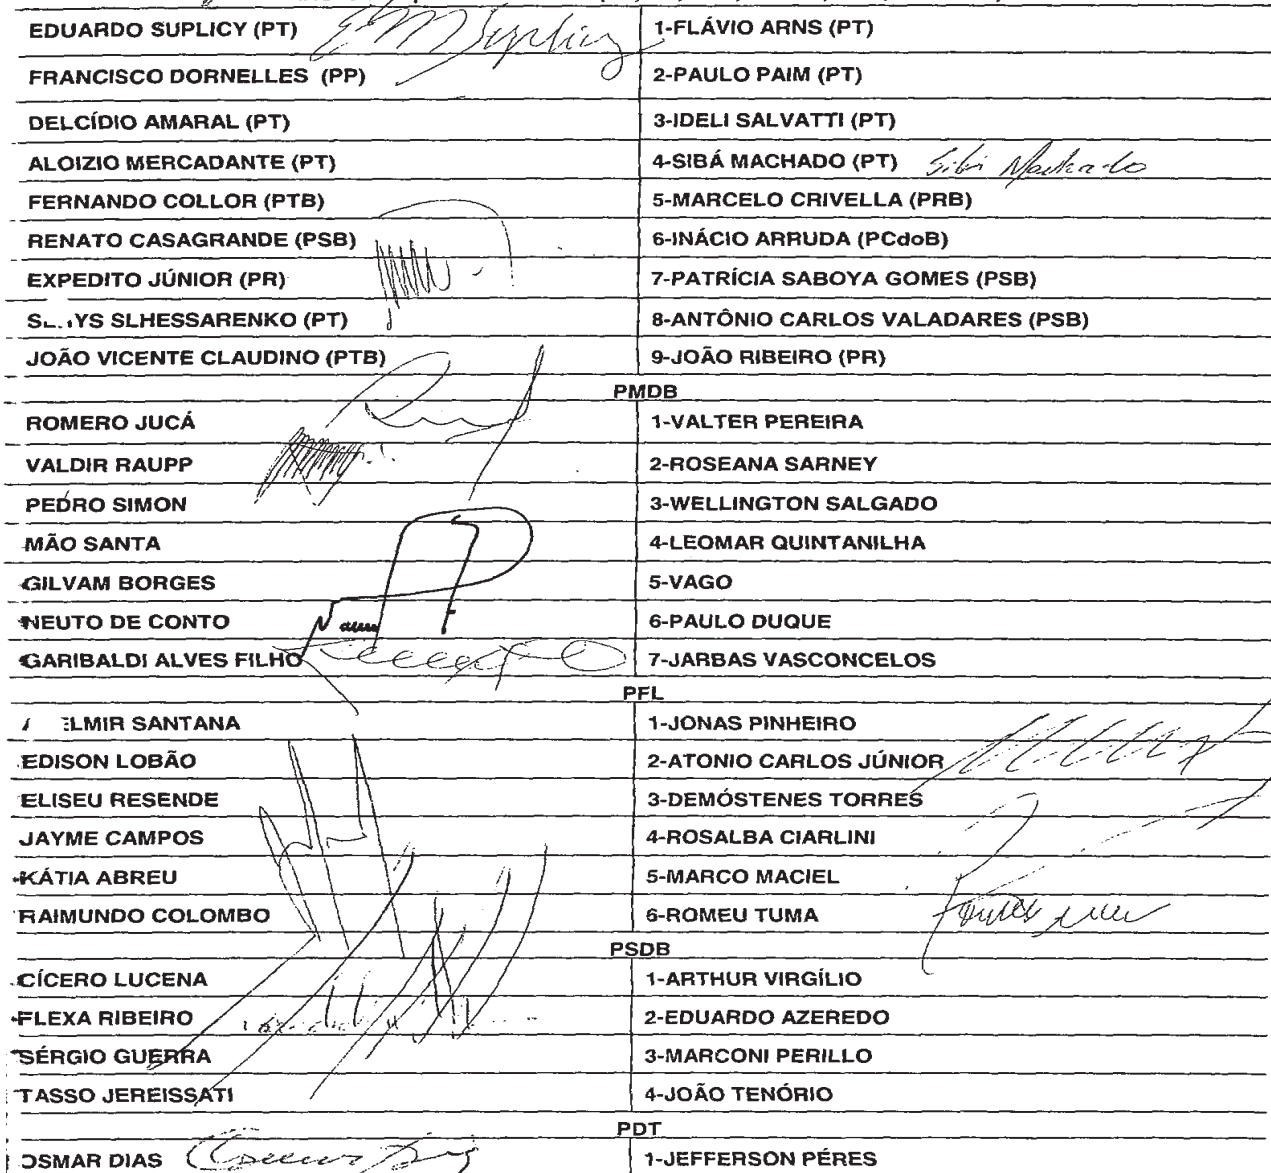 EDUARDO SUPLICY (PT) 1-FLÁVIO ARNS (PT)
FRANCISCO DORNELLES (PP) 2-PAULO PAIM (PT)
DELCÍDIO AMARAL (PT) 3-IDELI SALVATTI (PT)
ALOIZIO MERCADANTE (PT) 4-SIBÁ MACHADO (PT) Sibá Machado
FERNANDO COLLOR (PTB) 5-MARCELO CRIVELLA (PRB)
RENATO CASAGRANDE (PSB) 6-INÁCIO ARRUDA (PCdoB)
EXPEDITO JÚNIOR (PR) 7-PATRÍCIA SABOYA GOMES (PSB)
SLHESSARENKO (PT) 8-ANTÔNIO CARLOS VALADARES (PSB)
JOÃO VICENTE CLAUDINO (PTB) 9-JOÃO RIBEIRO (PR)
PMDB
ROMERO JUCÁ 1-VALTER PEREIRA
VALDIR RAUPP 2-ROSEANA SARNEY
PEDRO SIMON 3-WELLINGTON SALGADO
MÃO SANTA 4-LEOMAR QUINTANILHA
GILVAM BORGES 5-VAGO
NEUTO DE CONTO 6-PAULO DUQUE
GARIBALDI ALVES FILHO 7-JARBAS VASCONCELOS
PFL
ELMIR SANTANA 1-JONAS PINHEIRO
EDISON LOBÃO 2-ATONIO CARLOS JÚNIOR
ELISEU RESENDE 3-DEMÓSTENES TORRES
JAYME CAMPOS 4-ROSALBA CIARLINI
KÁTIA ABREU 5-MARCO MACIEL
RAIMUNDO COLOMBO 6-ROMEU TUMA
PSDB
CÍCERO LUCENA 1-ARTHUR VIRGÍLIO
FLEXA RIBEIRO 2-EDUARDO AZEREDO
SÉRGIO GUERRA 3-MARCONI PERILLO
TASSO JEREISSATI 4-JOÃO TENÓRIO
PDT
OSMAR DIAS 1-JEFFERSON PÉRES